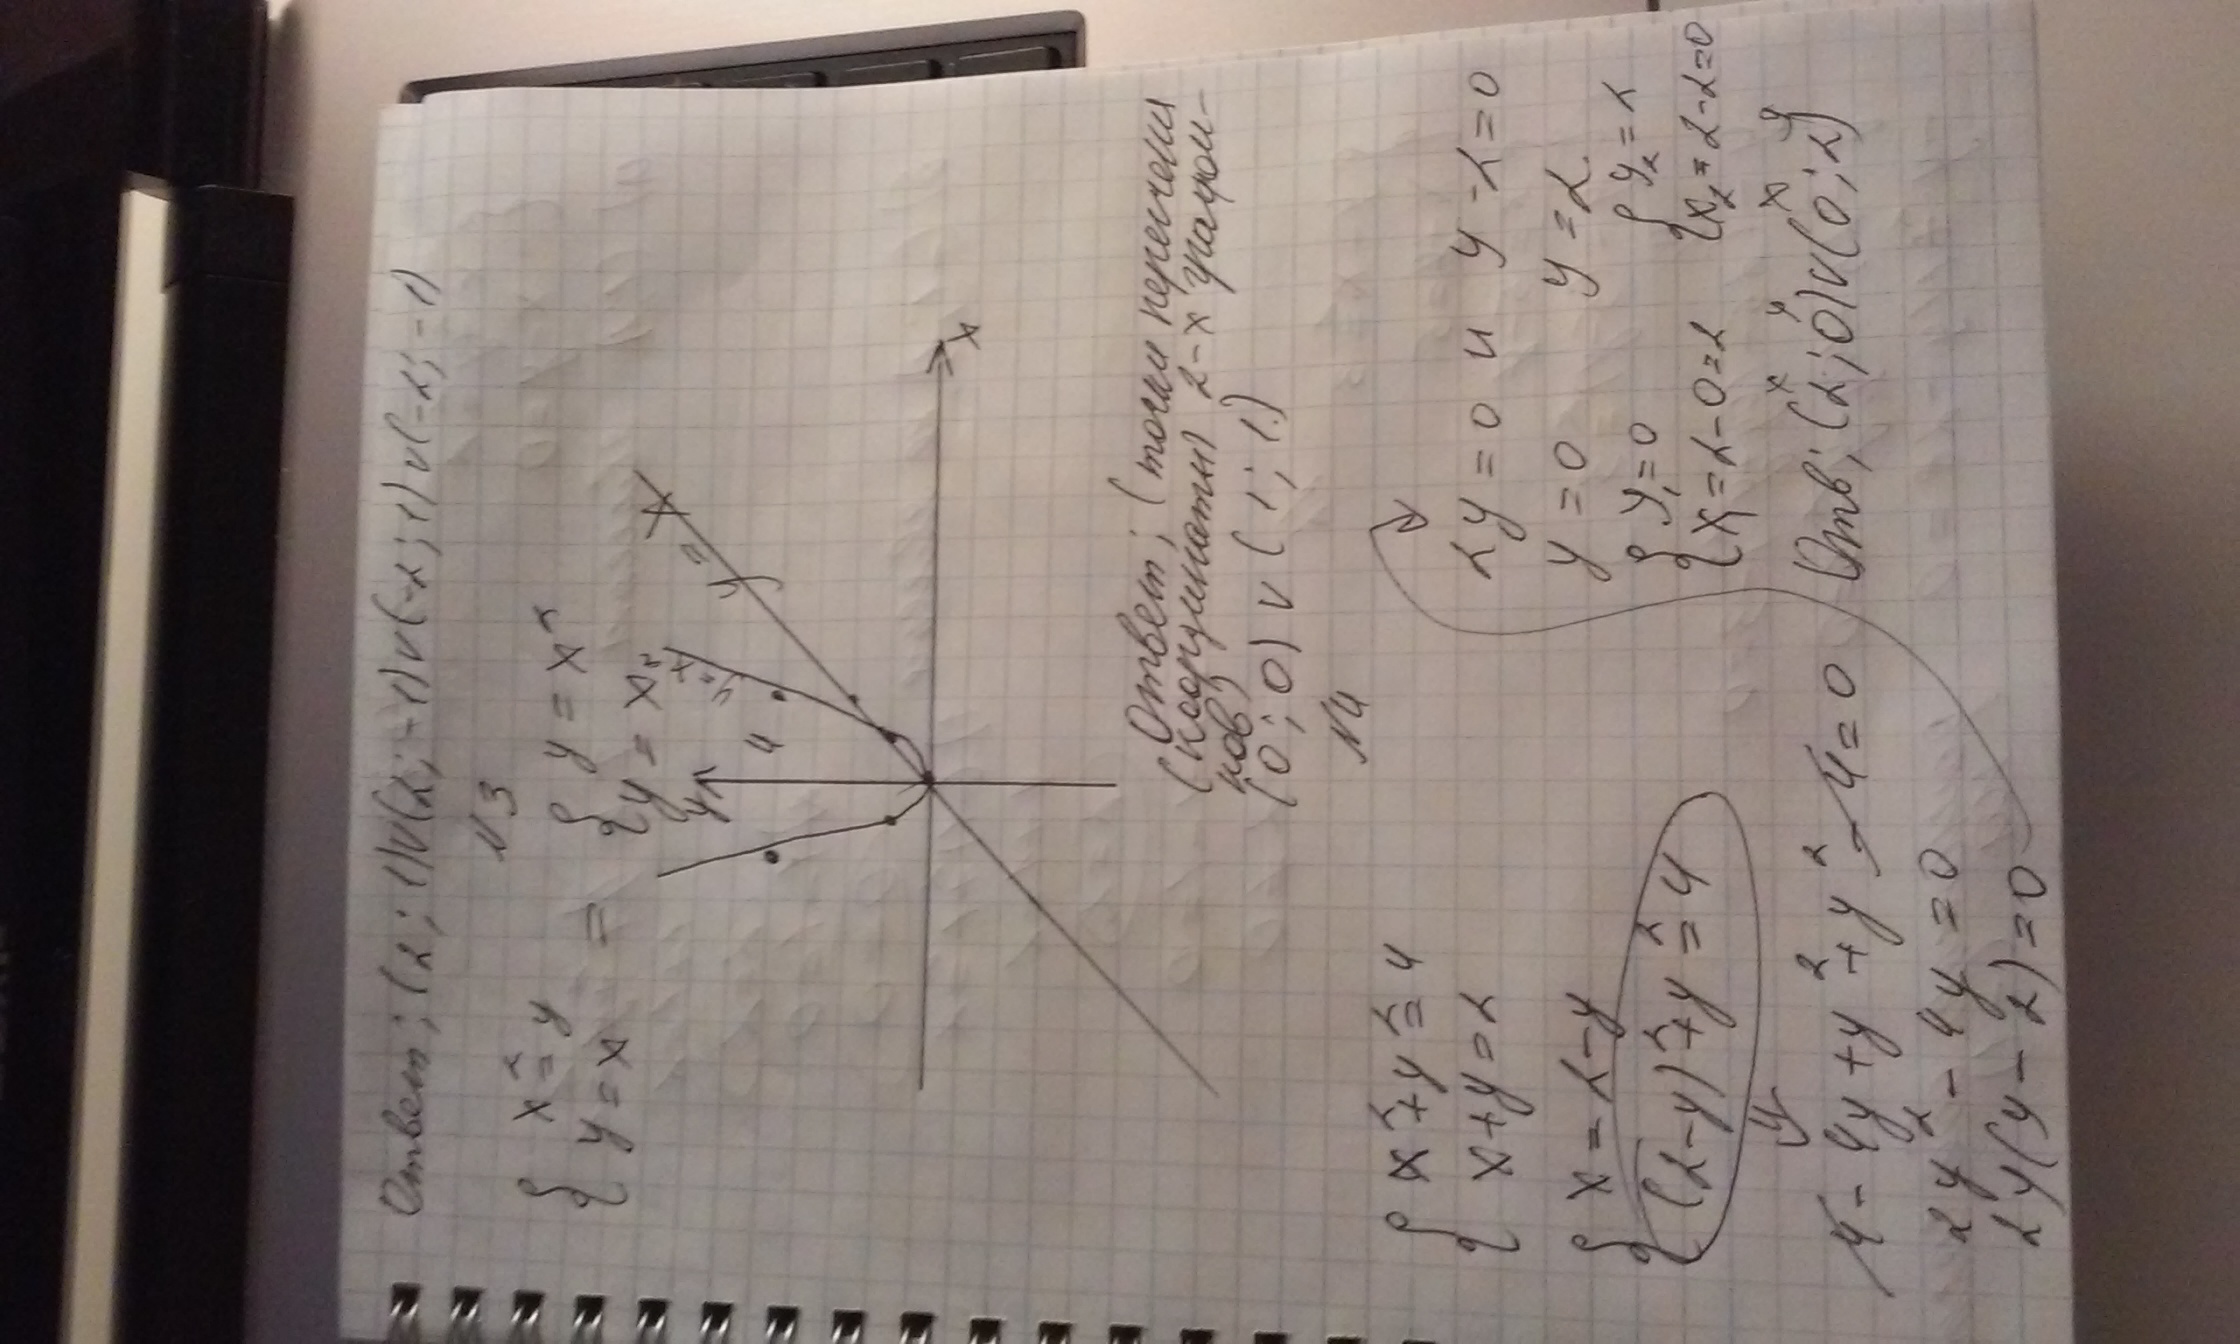 Ответ; (2; 1)V(2; -1)V(-2; 1)V(-2; -1)
N3
{ x² = y
{ y = x
=
{ y = x²
{ y = x²
y
4
y = x²
y = x
x
Ответ; (точки пересечени
(координаты) 2-х графи-
ков)
(0; 0) V (1; 1)
N4
{ x² + y² = 4
x + y = 2
{ x = 2 - y
{ (2 - y)² + y² = 4
4 - 4y + y² + y² - 4 = 0
2y² - 4y = 0
2y(y - 2) = 0
2y = 0 и y - 2 = 0
y = 0 y = 2
{ y₁ = 0
{ x₁ = 2 - 0 = 2
{ y₂ = 2
{ x₂ = 2 - 2 = 0
x y x y
Отв; (2; 0)V(0; 2)